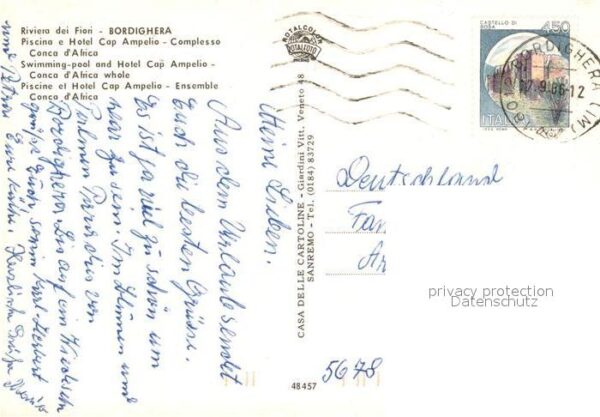 Riviera dei Fiori - BORDIGHERA
Piscina e Hotel Cap Ampelio - Complesso
Conca d'Africa
Swimming-pool and Hotel Cap Ampelio -
Conca d'Africa whole
Piscine et Hotel Cap Ampelio - Ensemble
Conca d'Africa
ROTALCOLOR
ROTALFOTO
CASTELLO DI
ROSA
450
ITALIA
BORDIGHERA (IM)
9.86-12
Meine Lieben.
Aus dem Urlaub sendet
Euch die besten Grüsse.
Es ist ja viel zu schön um
wahr zu sein. Im Blumen und
Palmen Paradies von
Bordighera. Bis auf ein Wiedersehn
Karl-Herbert
und Petra
Herzliche Grüße
CASA DELLE CARTOLINE - Giardini Vitt. Veneto 48
SANREMO - Tel. (0184) 83729
Deutschland
Fam
Ar
privacy protection
Datenschutz
5678
48457